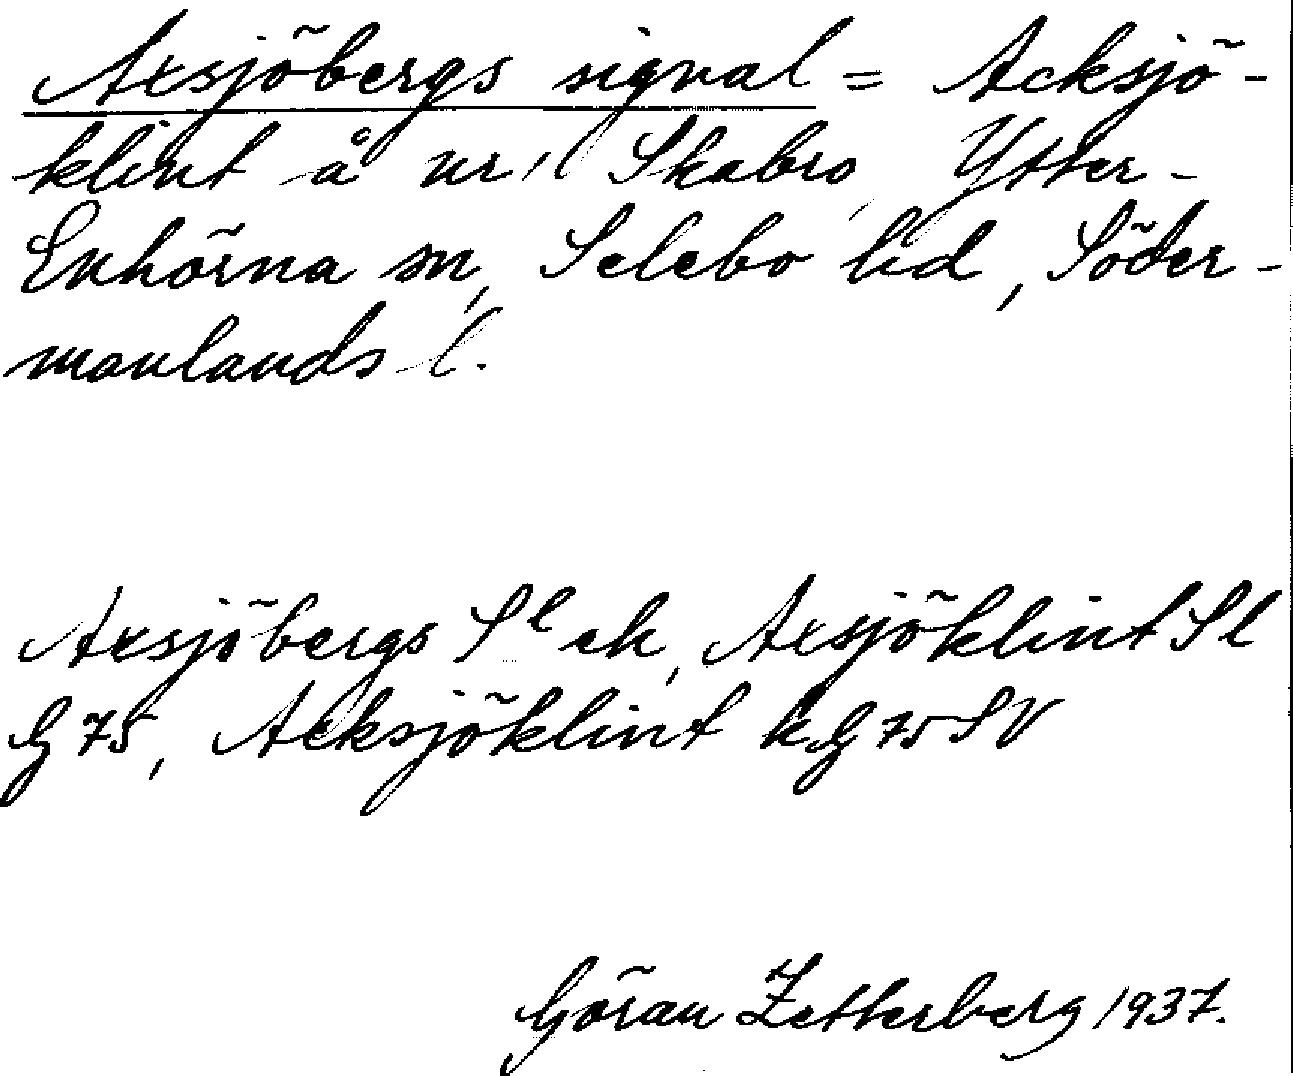 Axsjöbergs signal = Acksjö-
klint å nr 1 Skabro, Ytter-
Enhörna sn, Selebo hd, Söder-
manlands l.
Axsjöbergs Sl ek, Axsjöklint Sl
G 75, Acksjöklint k G 75 SV
Göran Zetterberg 1937.